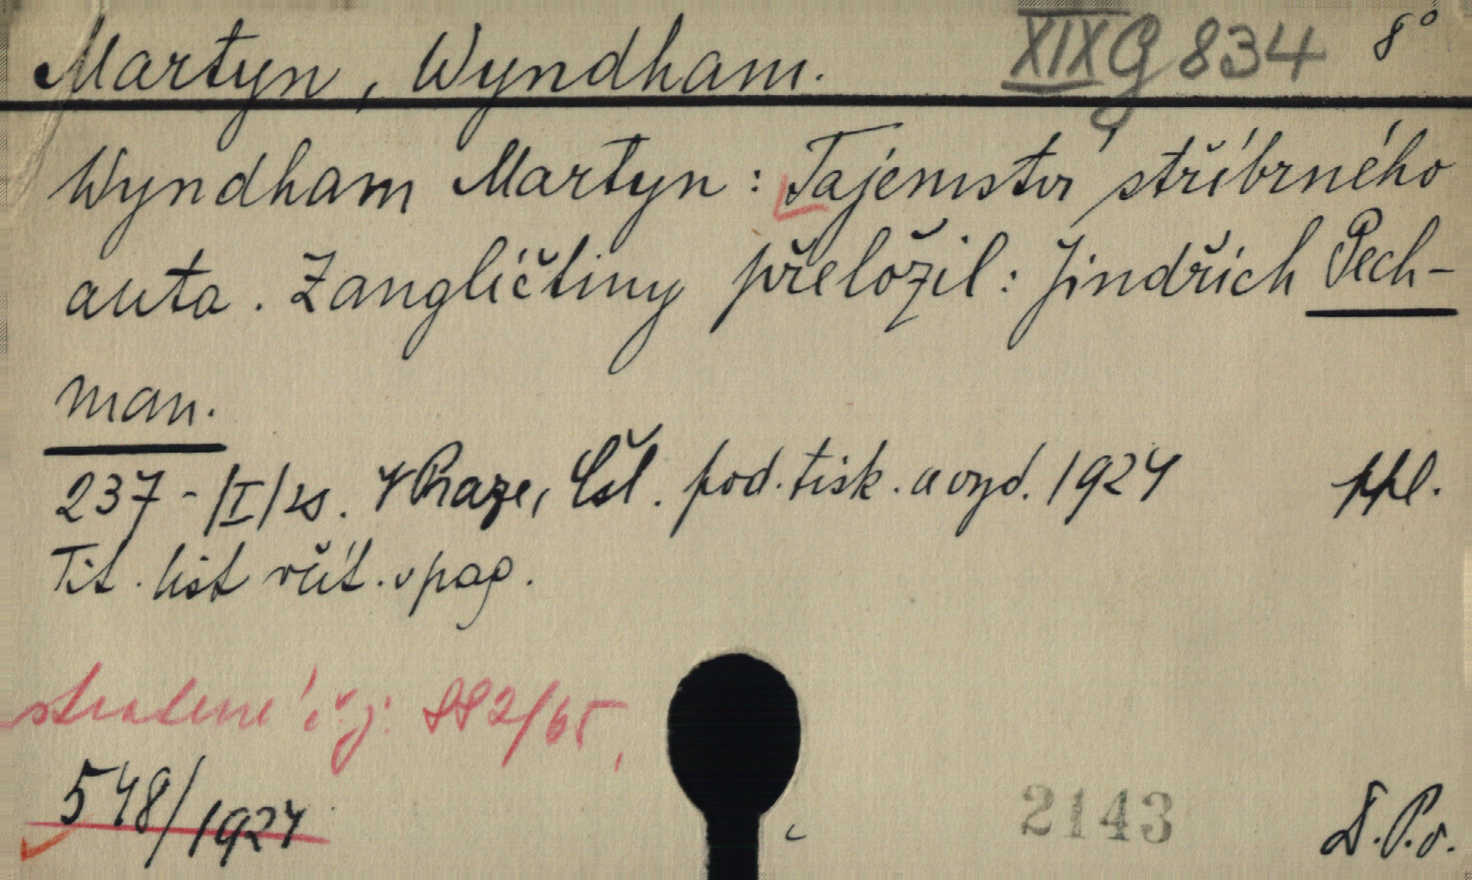 Martyn, Wyndham. XIX G 834 8°
Wyndham Martyn: Tajemství stříbrného
auta. Z angličtiny přeložil: Jindřich Pech-
man.
237 - /I/ s. V Praze, Čsl. pod. tisk. a vyd. 1924 ppl.
Tit. list včít. v pag.
stratené č j: 882/65,
548/1924
2143 D.P.v.